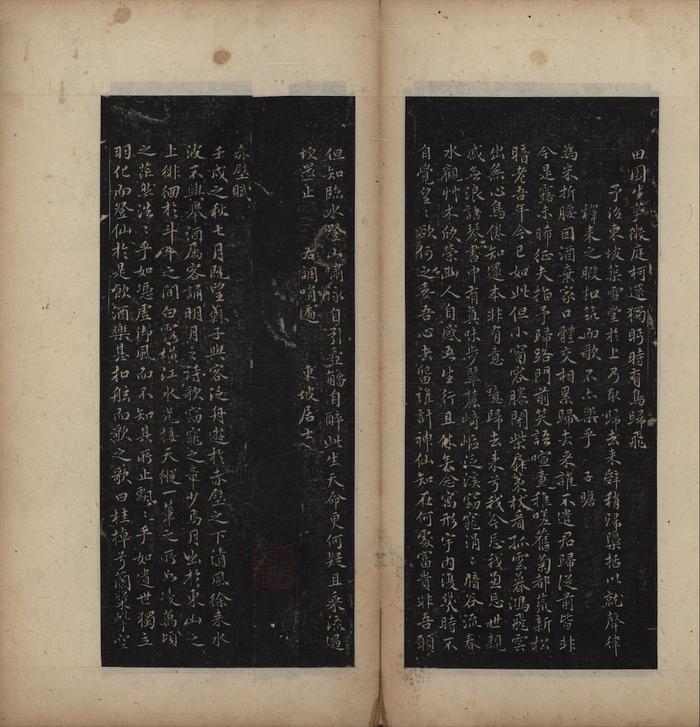 田園生夢庭柯還獨眄時有鳥歸飛
予治東坡築雪堂於上乃取歸去來辭稍歸檃括以就聲律
釋耒之暇扣筑而歌不亦樂乎 子瞻
為米折腰因酒棄家口體交相累歸去來誰不遣君歸從前皆非
今是露未晞征夫指予歸路門前笑語喧童稚嗟舊菊都荒新松
暗老吾年今已如此但小窗容膝閉柴扉策杖看孤雲暮鴻飛雲
出無心鳥倦知還本非有意 噫歸去來兮我今忘我兼忘世親
戚無浪語琴書中有真味步翠麓崎嶇泛溪窈窕涓〻暗谷流春
水觀艸木欣榮幽人自感吾生行且休矣念寓形宇內復幾時不
自覺皇〻欲何之委吾心去留誰計神仙知在何處富貴非吾願
但知臨水登山嘯詠自引壺觴自醉此生天命更何疑且乘流遇
坎還止 右調哨遍 東坡居士
赤壁賦
壬戌之秋七月既望蘇子與客泛舟遊於赤壁之下清風徐來水
波不興舉酒屬客誦明月之詩歌窈窕之章少焉月出於東山之
上徘徊於斗牛之間白露橫江水光接天縱一葦之所如凌萬頃
之茫然浩〻乎如憑虛御風而不知其所止飄〻乎如遺世獨立
羽化而登仙於是飲酒樂甚扣舷而歌之歌曰桂棹兮蘭槳擊空